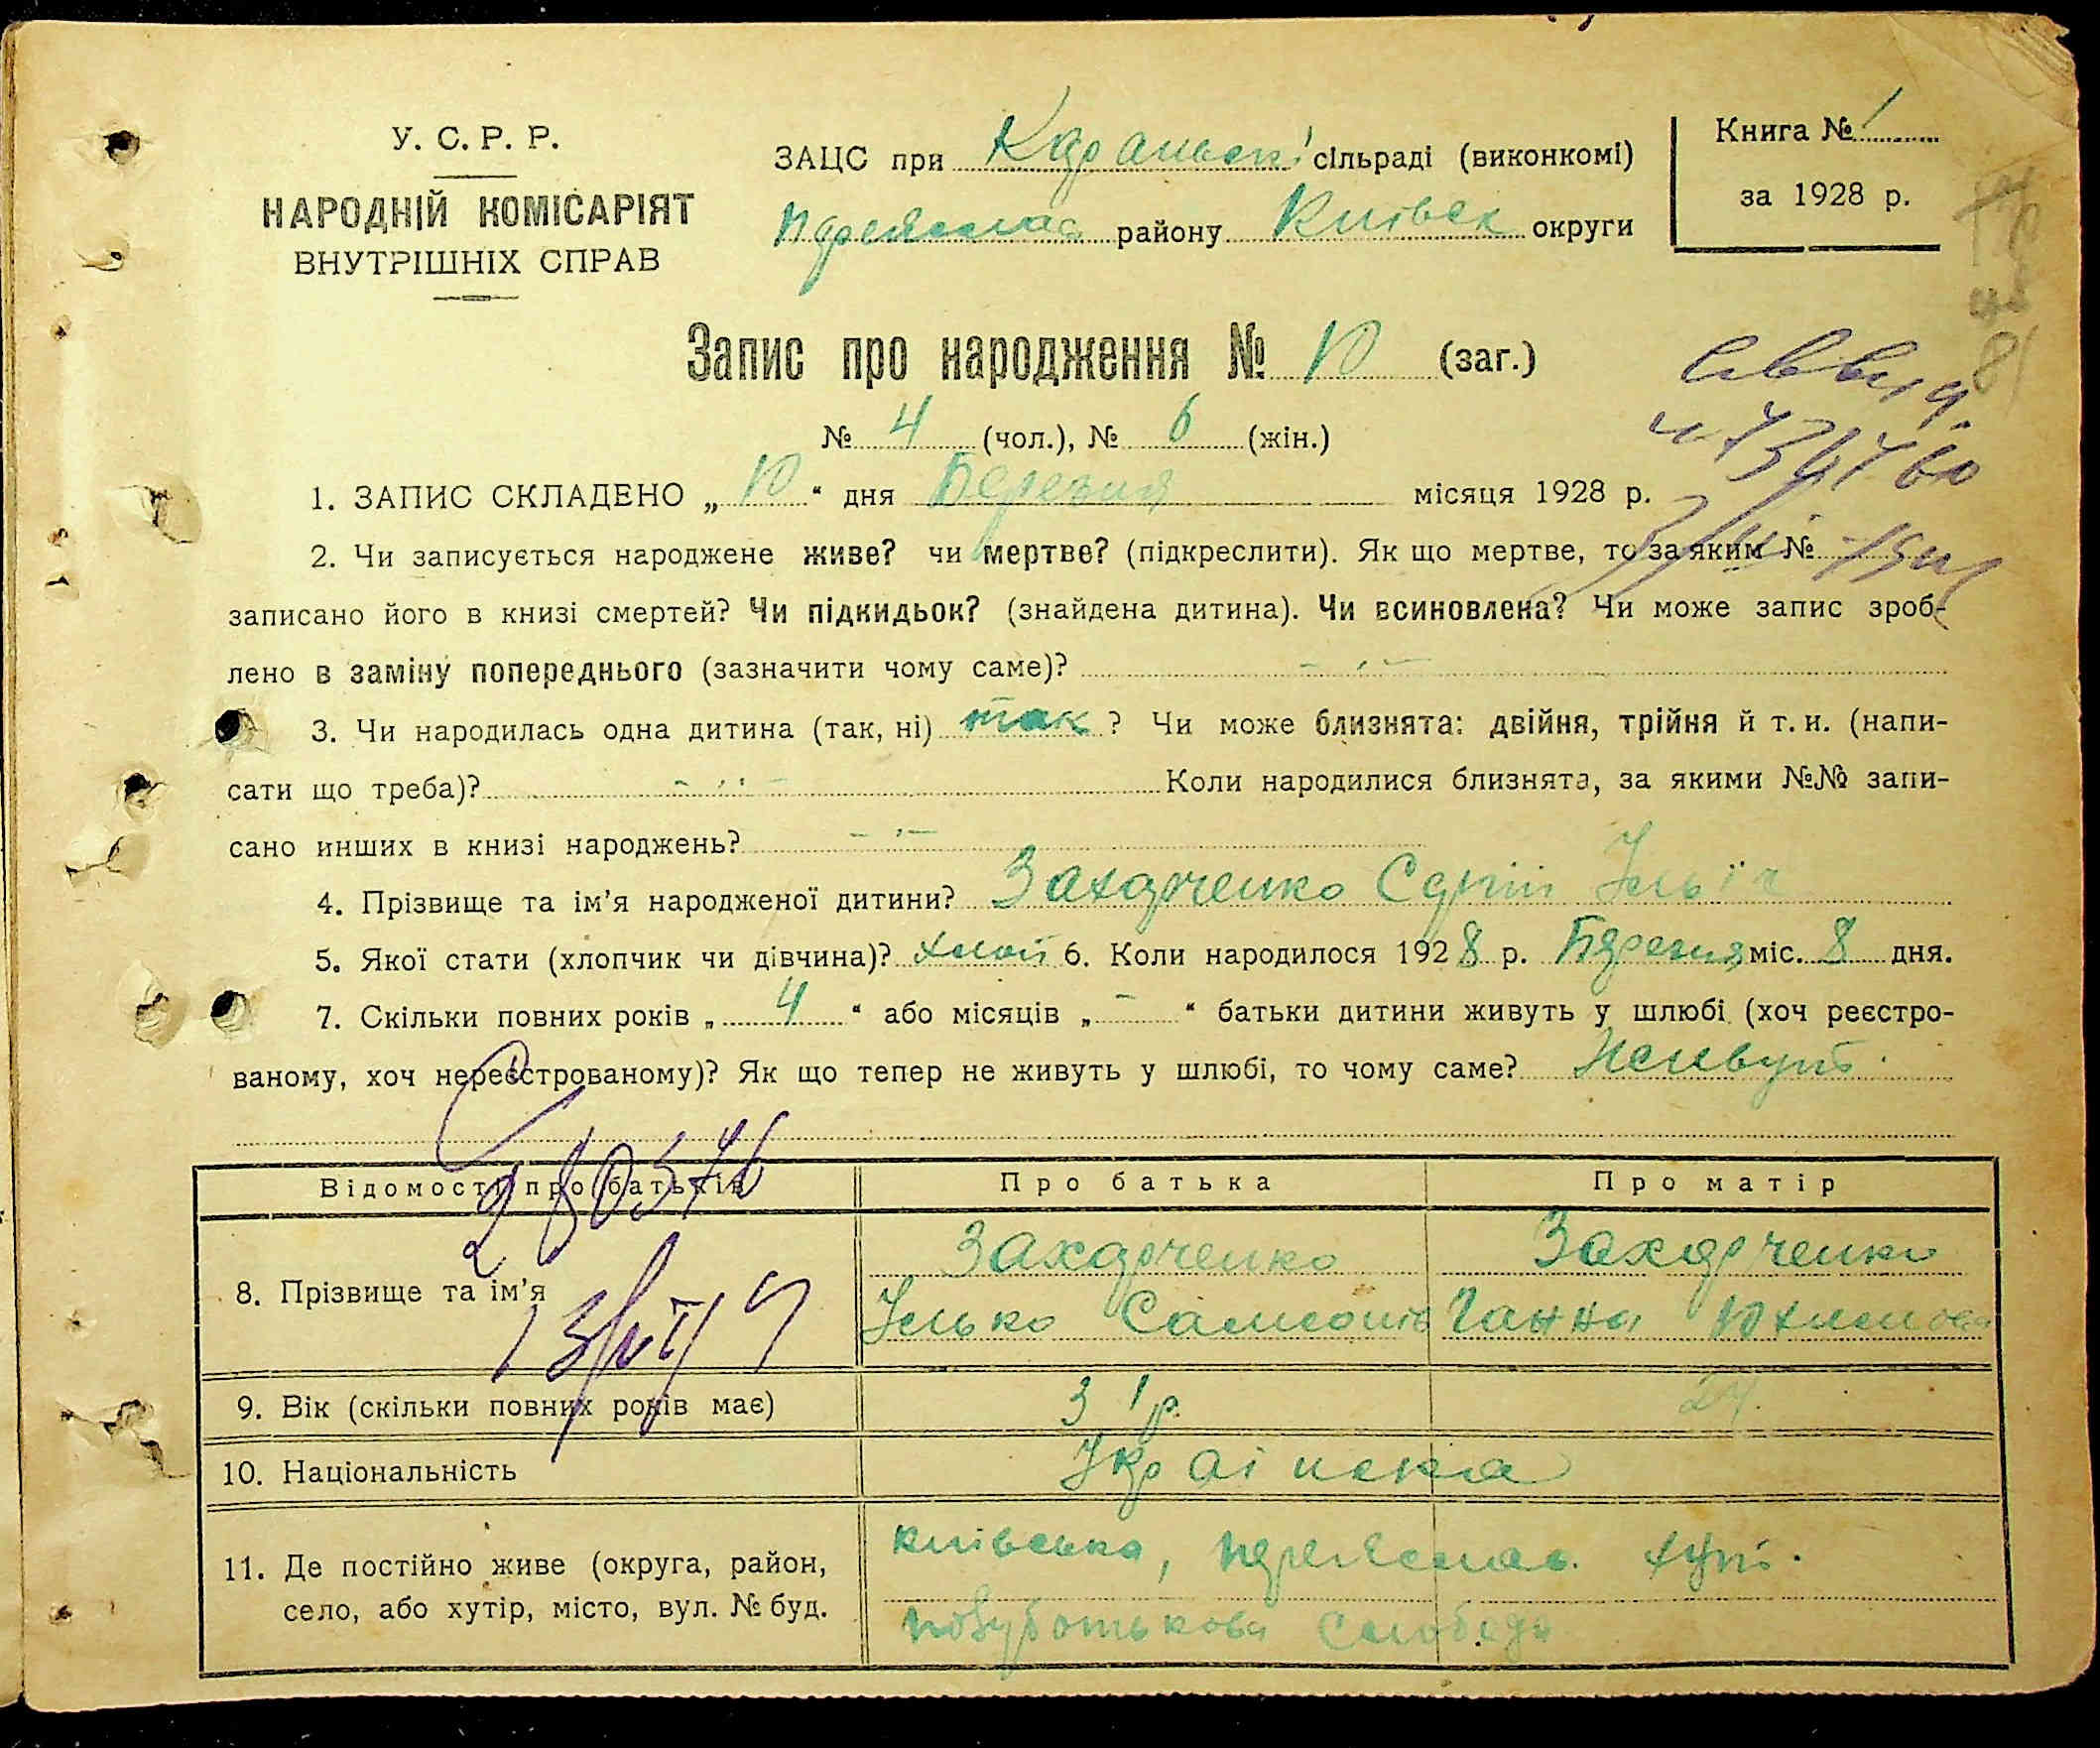 У. С. Р. Р.
НАРОДНІЙ КОМІСАРІЯТ
ВНУТРІШНІХ СПРАВ
ЗАЦС при Каранській сільраді (виконкомі)
району Київськ округи
Книга № 1
за 1928 р.
Запис про народження № 10 (заг.)
№ 4 (чол.), № 6 (жін.)
1. ЗАПИС СКЛАДЕНО „ 10 “ дня Березня місяця 1928 р.
2. Чи записується народжене живе? чи мертве? (підкреслити). Як що мертве, то за яким №
записано його в книзі смертей? Чи підкидьок? (знайдена дитина). Чи всиновлена? Чи може запис зроб-
лено в заміну попереднього (зазначити чому саме)? - „ -
3. Чи народилась одна дитина (так, ні) так ? Чи може близнята: двійня, трійня й т. и. (напи-
сати що треба)? - „ - Коли народилися близнята, за якими №№ запи-
сано инших в книзі народжень? - „ -
4. Прізвище та ім’я народженої дитини? Захарченко Сергій
5. Якої стати (хлопчик чи дівчина)? хлоп 6. Коли народилося 1928 р. Березня міс. 8 дня.
7. Скільки повних років „ 4 “ або місяців „ - “ батьки дитини живуть у шлюбі (хоч реєстро-
ваному, хоч нереєстрованому)? Як що тепер не живуть у шлюбі, то чому саме?
Відомості про батьків
Про батька
Про матір
8. Прізвище та ім’я
Захарченко
Ілько Самсонів
Захарченко
Ганна
9. Вік (скільки повних років має)
31 р.
24.
10. Національність
Українська
11. Де постійно живе (округа, район,
село, або хутір, місто, вул. № буд.
Київська, Переяслав. хут.
Слобода